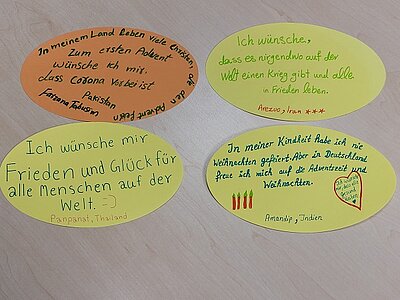 In meinem Land leben viele Christen, die den Advent feiern
Zum ersten Advent
wünsche ich mir,
dass Corona vorbei ist
Pakistan
Farzana
Ich wünsche,
dass es nirgendwo auf der
Welt einen Krieg gibt und alle
in Frieden leben.
Arezuo, Iran ***
Ich wünsche mir
Frieden und Glück für
alle Menschen auf der
Welt. =)
Panpanat, Thailand
In meiner Kindheit habe ich nie
Weihnachten gefeiert. Aber in Deutschland
freue ich mich auf die Adventszeit und
Weihnachten.
Amandip, Indien